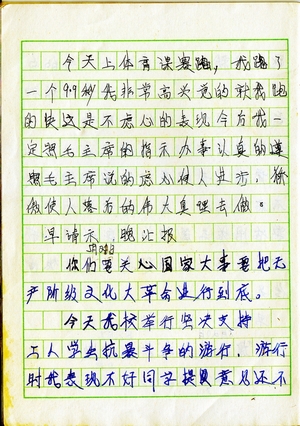 今天上体育课赛跑，我跑了
一个9.9秒我非常高兴觉的就我跑
的快这是不虚心的表现今后我一
定照毛主席的指示办事认真的遵
照毛主席说的虚心使人进步，骄
傲使人落后的伟大真理去做。
早请示，晚汇报
你们要关心国家大事要把无
产阶级文化大革命进行到底。
今天我校举行坚决支持
工人学生抗暴斗争的游行，游行
时我表现不好同学提意见还不